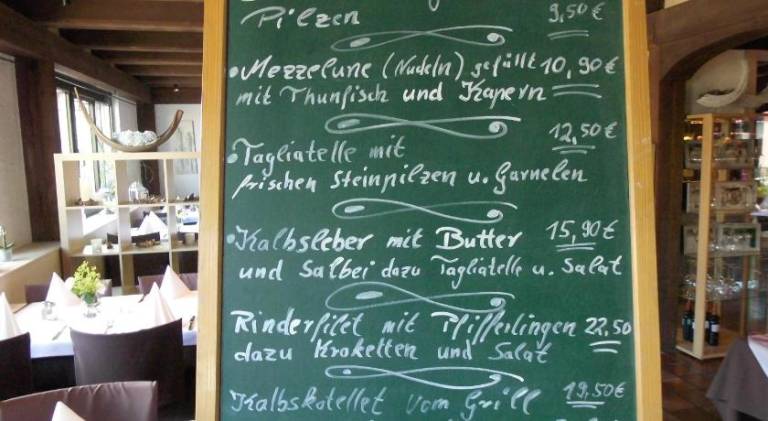 Pilzen 9,50 €
• Mezzelune (Nudeln) gefüllt 10,90 €
mit Thunfisch und Kapern
• Tagliatelle mit 12,50 €
frischen Steinpilzen u. Garnelen
• Kalbsleber mit Butter 15,90 €
und Salbei dazu Tagliatelle u. Salat
Rinderfilet mit Pfifferlingen 22,50
dazu Kroketten und Salat
Kalbskotellet vom Grill 19,50 €